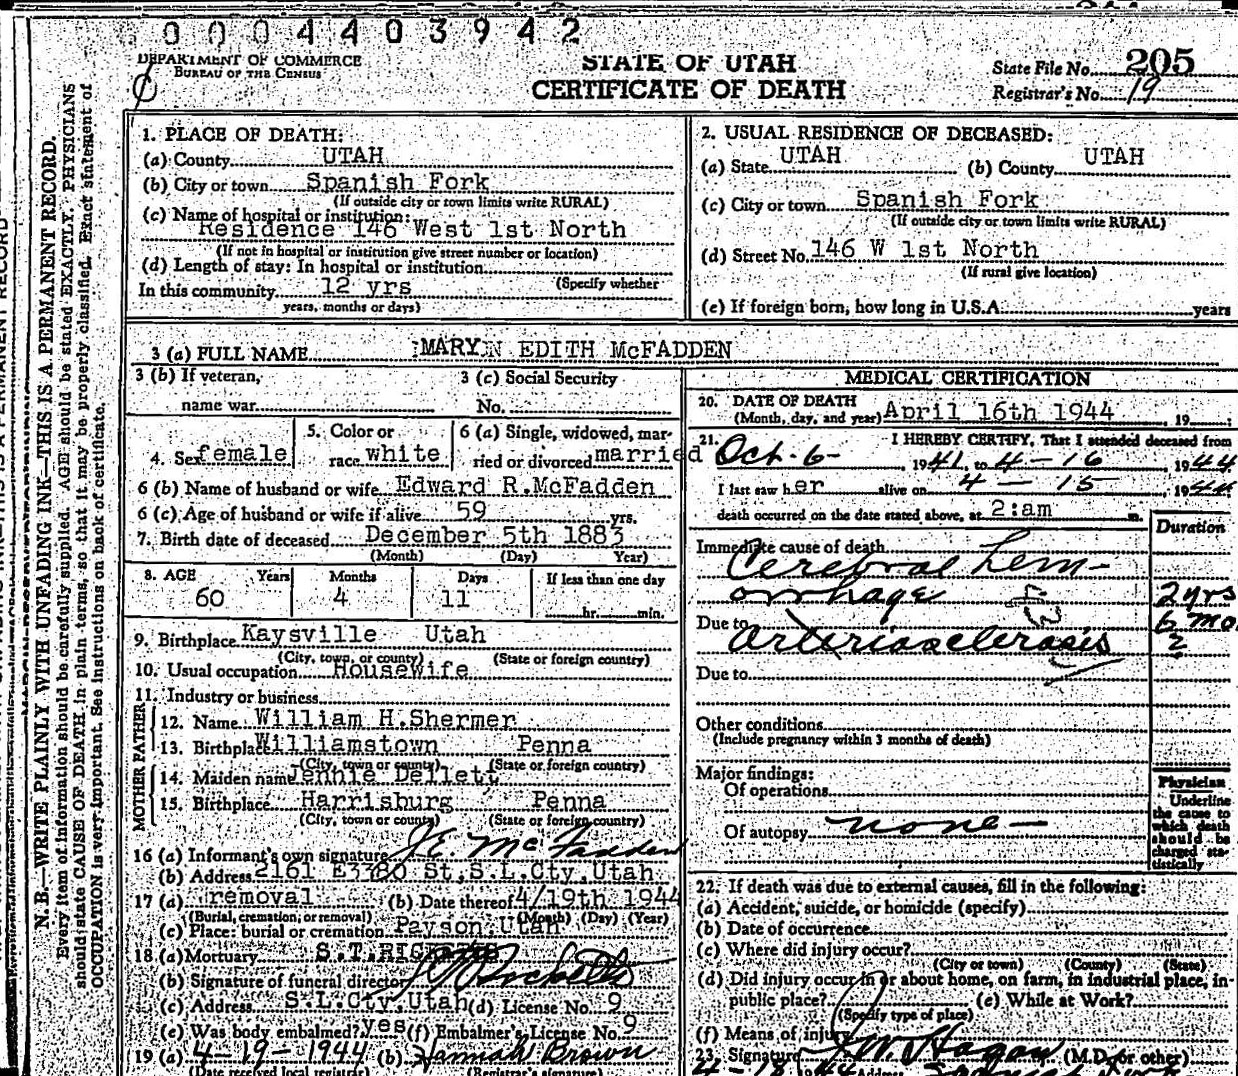 0004403942
DEPARTMENT OF COMMERCE
BUREAU OF THE CENSUS
STATE OF UTAH
CERTIFICATE OF DEATH
State File No. 205
Registrar's No. 19
N. B.—WRITE PLAINLY WITH UNFADING INK—THIS IS A PERMANENT RECORD.
Every item of information should be carefully supplied. AGE should be stated EXACTLY. PHYSICIANS
should state CAUSE OF DEATH in plain terms, so that it may be properly classified. Exact statement of
OCCUPATION is very important. See instructions on back of certificate.
1. PLACE OF DEATH:
(a) County UTAH
(b) City or town Spanish Fork
(If outside city or town limits write RURAL)
(c) Name of hospital or institution:
Residence 146 West 1st North
(If not in hospital or institution give street number or location)
(d) Length of stay: In hospital or institution
(Specify whether
In this community 12 yrs
years, months or days)
2. USUAL RESIDENCE OF DECEASED:
(a) State UTAH (b) County UTAH
(c) City or town Spanish Fork
(If outside city or town limits write RURAL)
(d) Street No. 146 W 1st North
(If rural give location)
(e) If foreign born, how long in U.S.A. years
3 (a) FULL NAME MARY EDITH McFADDEN
3 (b) If veteran,
name war
3 (c) Social Security
No.
4. Sex female
5. Color or
race white
6 (a) Single, widowed, mar-
ried or divorced married
6 (b) Name of husband or wife Edward R.McFadden
6 (c) Age of husband or wife if alive 59 yrs.
7. Birth date of deceased December 5th 1883
(Month) (Day) Year)
8. AGE Years Months Days If less than one day
60 4 11 hr. min.
9. Birthplace Kaysville Utah
(City, town, or county) (State or foreign country)
10. Usual occupation Housewife
11. Industry or business
FATHER
12. Name William H.Shermer
13. Birthplace Williamstown Penna
(City, town or county) (State or foreign country)
MOTHER
14. Maiden name Jennie Dellett
15. Birthplace Harrisburg Penna
(City, town or county) (State or foreign country)
16 (a) Informant's own signature J E McFadden
(b) Address 2161 E3380 St,S.L.Cty,Utah
17 (a) removal (b) Date thereof 4/19th 1944
(Burial, cremation, or removal) (Month) (Day) (Year)
(c) Place: burial or cremation Payson,Utah
18 (a) Mortuary S.T.RICKETTS
(b) Signature of funeral director Ricketts
(c) Address S.L.Cty,Utah (d) License No. 9
(e) Was body embalmed? yes (f) Embalmer's License No. 9
19 (a) 4-19-1944 (b) Hannah Brown
(Date received local registrar) (Registrar's signature)
MEDICAL CERTIFICATION
20. DATE OF DEATH
(Month, day, and year) April 16th 1944, 19
21. I HEREBY CERTIFY, That I attended deceased from
Oct. 6-, 1941, to 4-16, 1944
I last saw her alive on 4-15, 1944
death occurred on the date stated above, at 2:am m.
Duration
Immediate cause of death
Cerebral hem-
orrhage 2 yrs
6 mo.
Due to Arteriosclerosis ?
Due to
Other conditions
(Include pregnancy within 3 months of death)
Major findings:
Of operations
Of autopsy none-
Physician
Underline
the cause to
which death
should be
charged sta-
tistically
22. If death was due to external causes, fill in the following:
(a) Accident, suicide, or homicide (specify)
(b) Date of occurrence
(c) Where did injury occur?
(City or town) (County) (State)
(d) Did injury occur in or about home, on farm, in industrial place, in
public place? (e) While at Work?
(Specify type of place)
(f) Means of injury
23. Signature W. Hagan (M.D. or other)
4-18 1944 Address